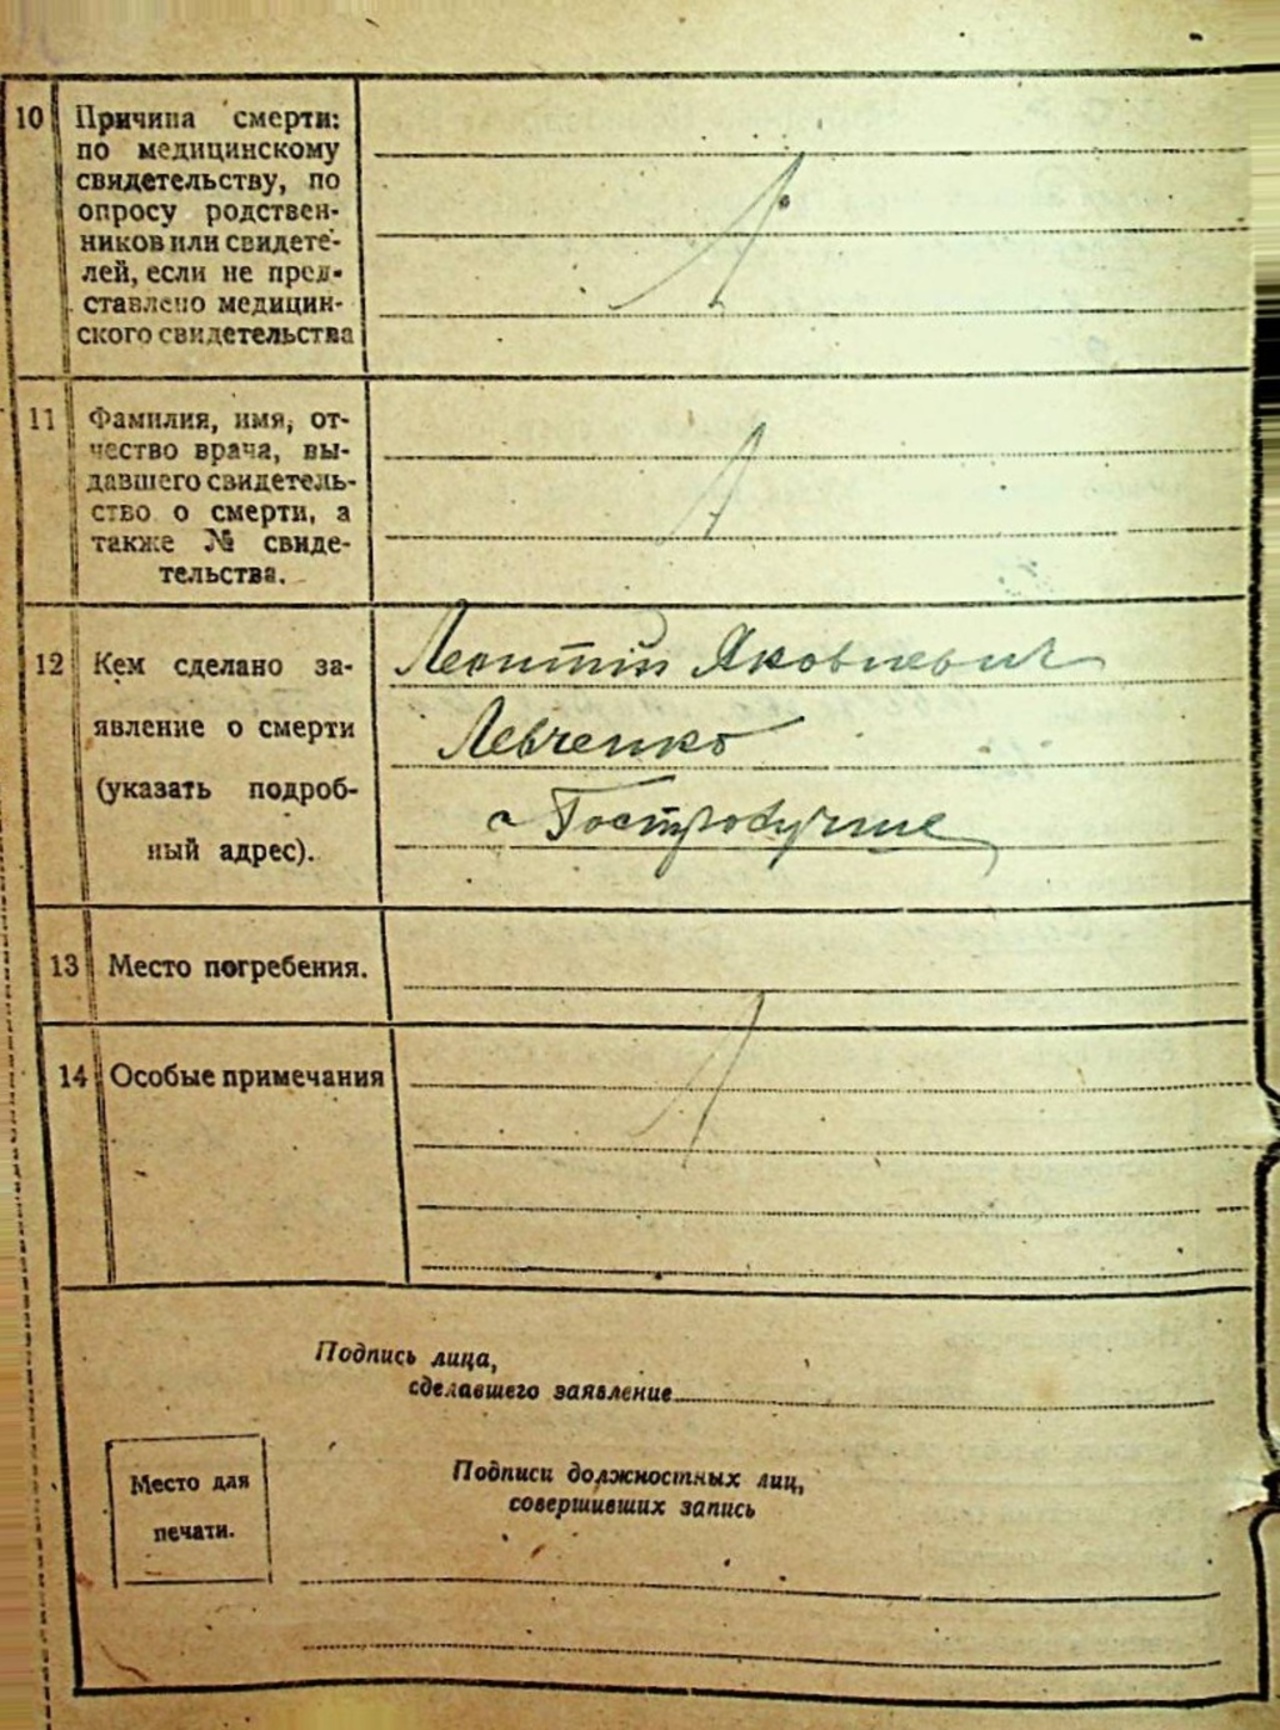 10 Причина смерти:
по медицинскому
свидетельству, по
опросу родствен-
ников или свидете-
лей, если не пред-
ставлено медицин-
ского свидетельства
11 Фамилия, имя, от-
чество врача, вы-
давшего свидетель-
ство о смерти, а
также № свиде-
тельства.
12 Кем сделано за-
явление о смерти
(указать подроб-
ный адрес).
Леонтій Яковлевич
Левченко
13 Место погребения.
14 Особые примечания
Подпись лица,
сделавшего заявление
Место для
печати.
Подписи должностных лиц,
совершивших запись